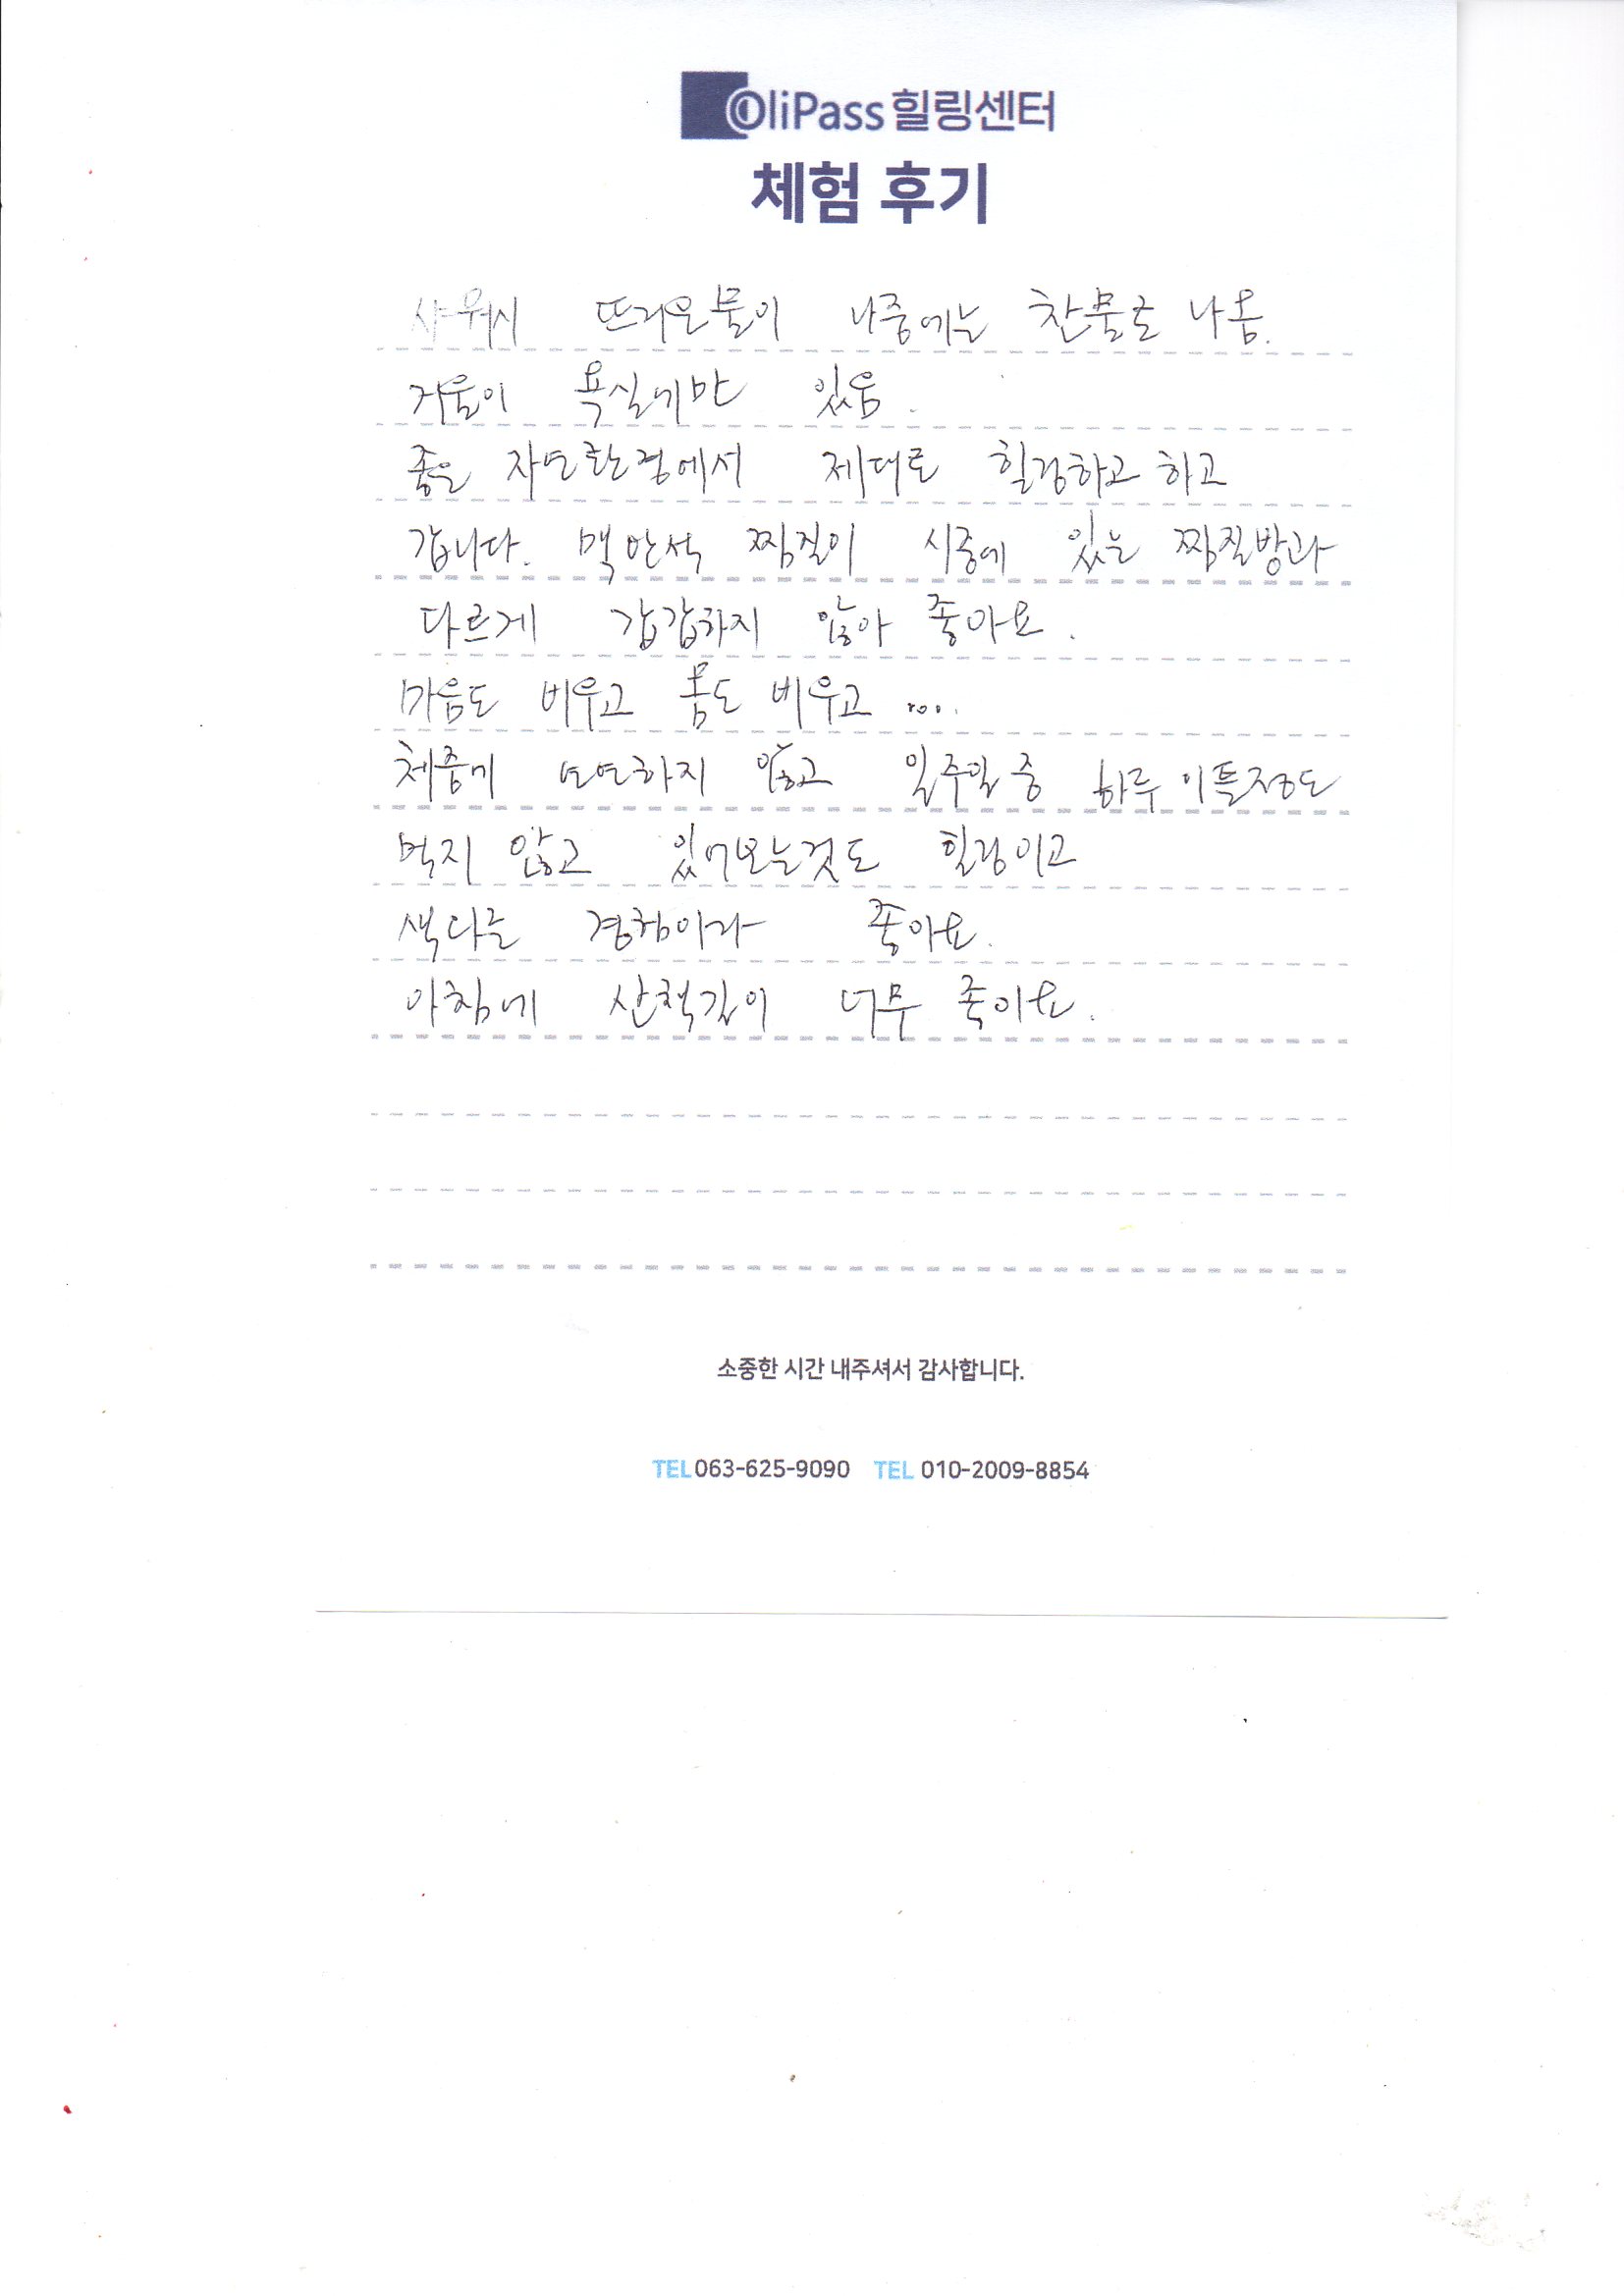 OliPass 힐링센터
체험 후기
샤워시 뜨거운물이 나중에는 찬물로 나옴.
거울이 욕실에만 있음.
좋은 자연환경에서 제대로 힐링하고 하고
갑니다. 맥반석 찜질이 시중에 있는 찜질방과
다르게 갑갑하지 않아 좋아요.
마음도 비우고 몸도 비우고 ....
체중에 연연하지 않고 일주일 중 하루 이틀정도
먹지 않고 있어보는것도 힐링이고
색다른 경험이라 좋아요.
아침에 산책길이 너무 좋아요.
소중한 시간 내주셔서 감사합니다.
TEL 063-625-9090 TEL 010-2009-8854